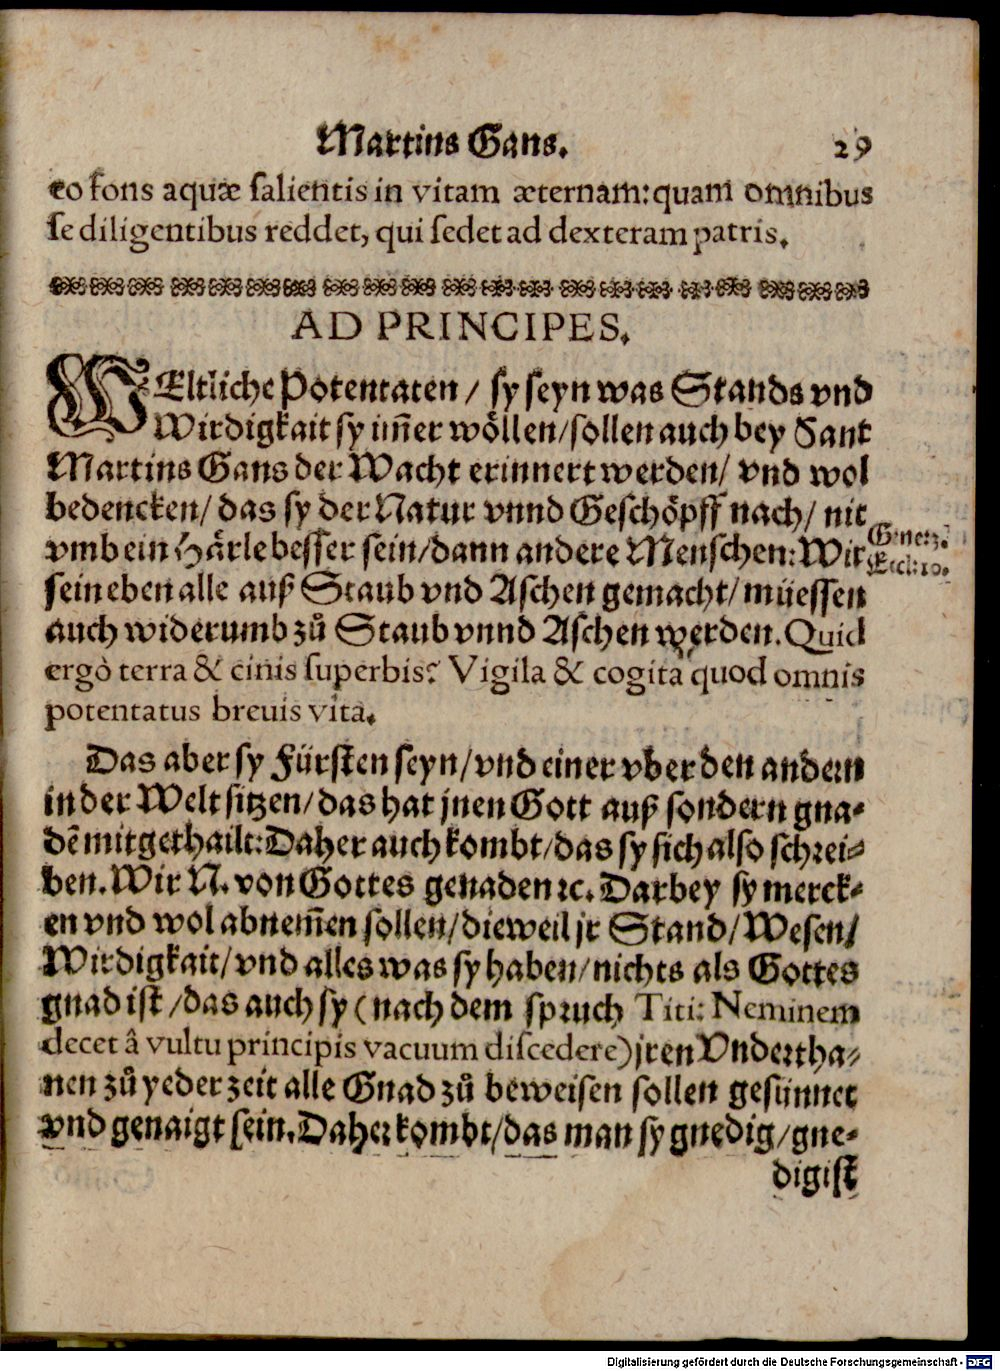 Martins Gans. 29
eo fons aquæ ſalientis in vitam æternam: quam omnibus
ſe diligentibus reddet, qui ſedet ad dexteram patris.
AD PRINCIPES.
WEltliche Potentaten / ſy ſeyn was Stands vnd
Wirdigkait ſy im̃er wöllen/ſollen auch bey Sant
Martins Gans der Wacht erinnert werden/ vnd wol
bedencken/ das ſy der Natur vnnd Geſchöpff nach/ nit
vmb ein Härle beſſer ſein/dann andere Menſchen: Wir
Genes 3.
Eccli: 10.
ſein eben alle auß Staub vnd Aſchen gemacht/ müeſſen
auch widerumb zů Staub vnnd Aſchen werden. Quid
ergò terra & cinis ſuperbis? Vigila & cogita quod omnis
potentatus breuis vita.
Das aber ſy Fürſten ſeyn/vnd einer vber den andern
in der Welt ſitzen/das hat jnen Gott auß ſondern gna-
dẽ mitgethailt: Daher auch kombt/das ſy ſich alſo ſchꝛei-
ben. Wir N. von Gottes genaden ꝛc. Darbey ſy merck-
en vnd wol abnem̃en ſollen/dieweil jr Stand/Weſen/
Wirdigkait/vnd alles was ſy haben/nichts als Gottes
gnad iſt /das auch ſy (nach dem ſpꝛuch Titi: Neminem
decet â vultu principis vacuum diſcedere) jren Vndertha-
nen zů yeder zeit alle Gnad zů beweiſen ſollen geſünnet
vnd genaigt ſein. Daher kombt/das man ſy gnedig/gne-
digiſt
Digitalisierung gefördert durch die Deutsche Forschungsgemeinschaft - DFG